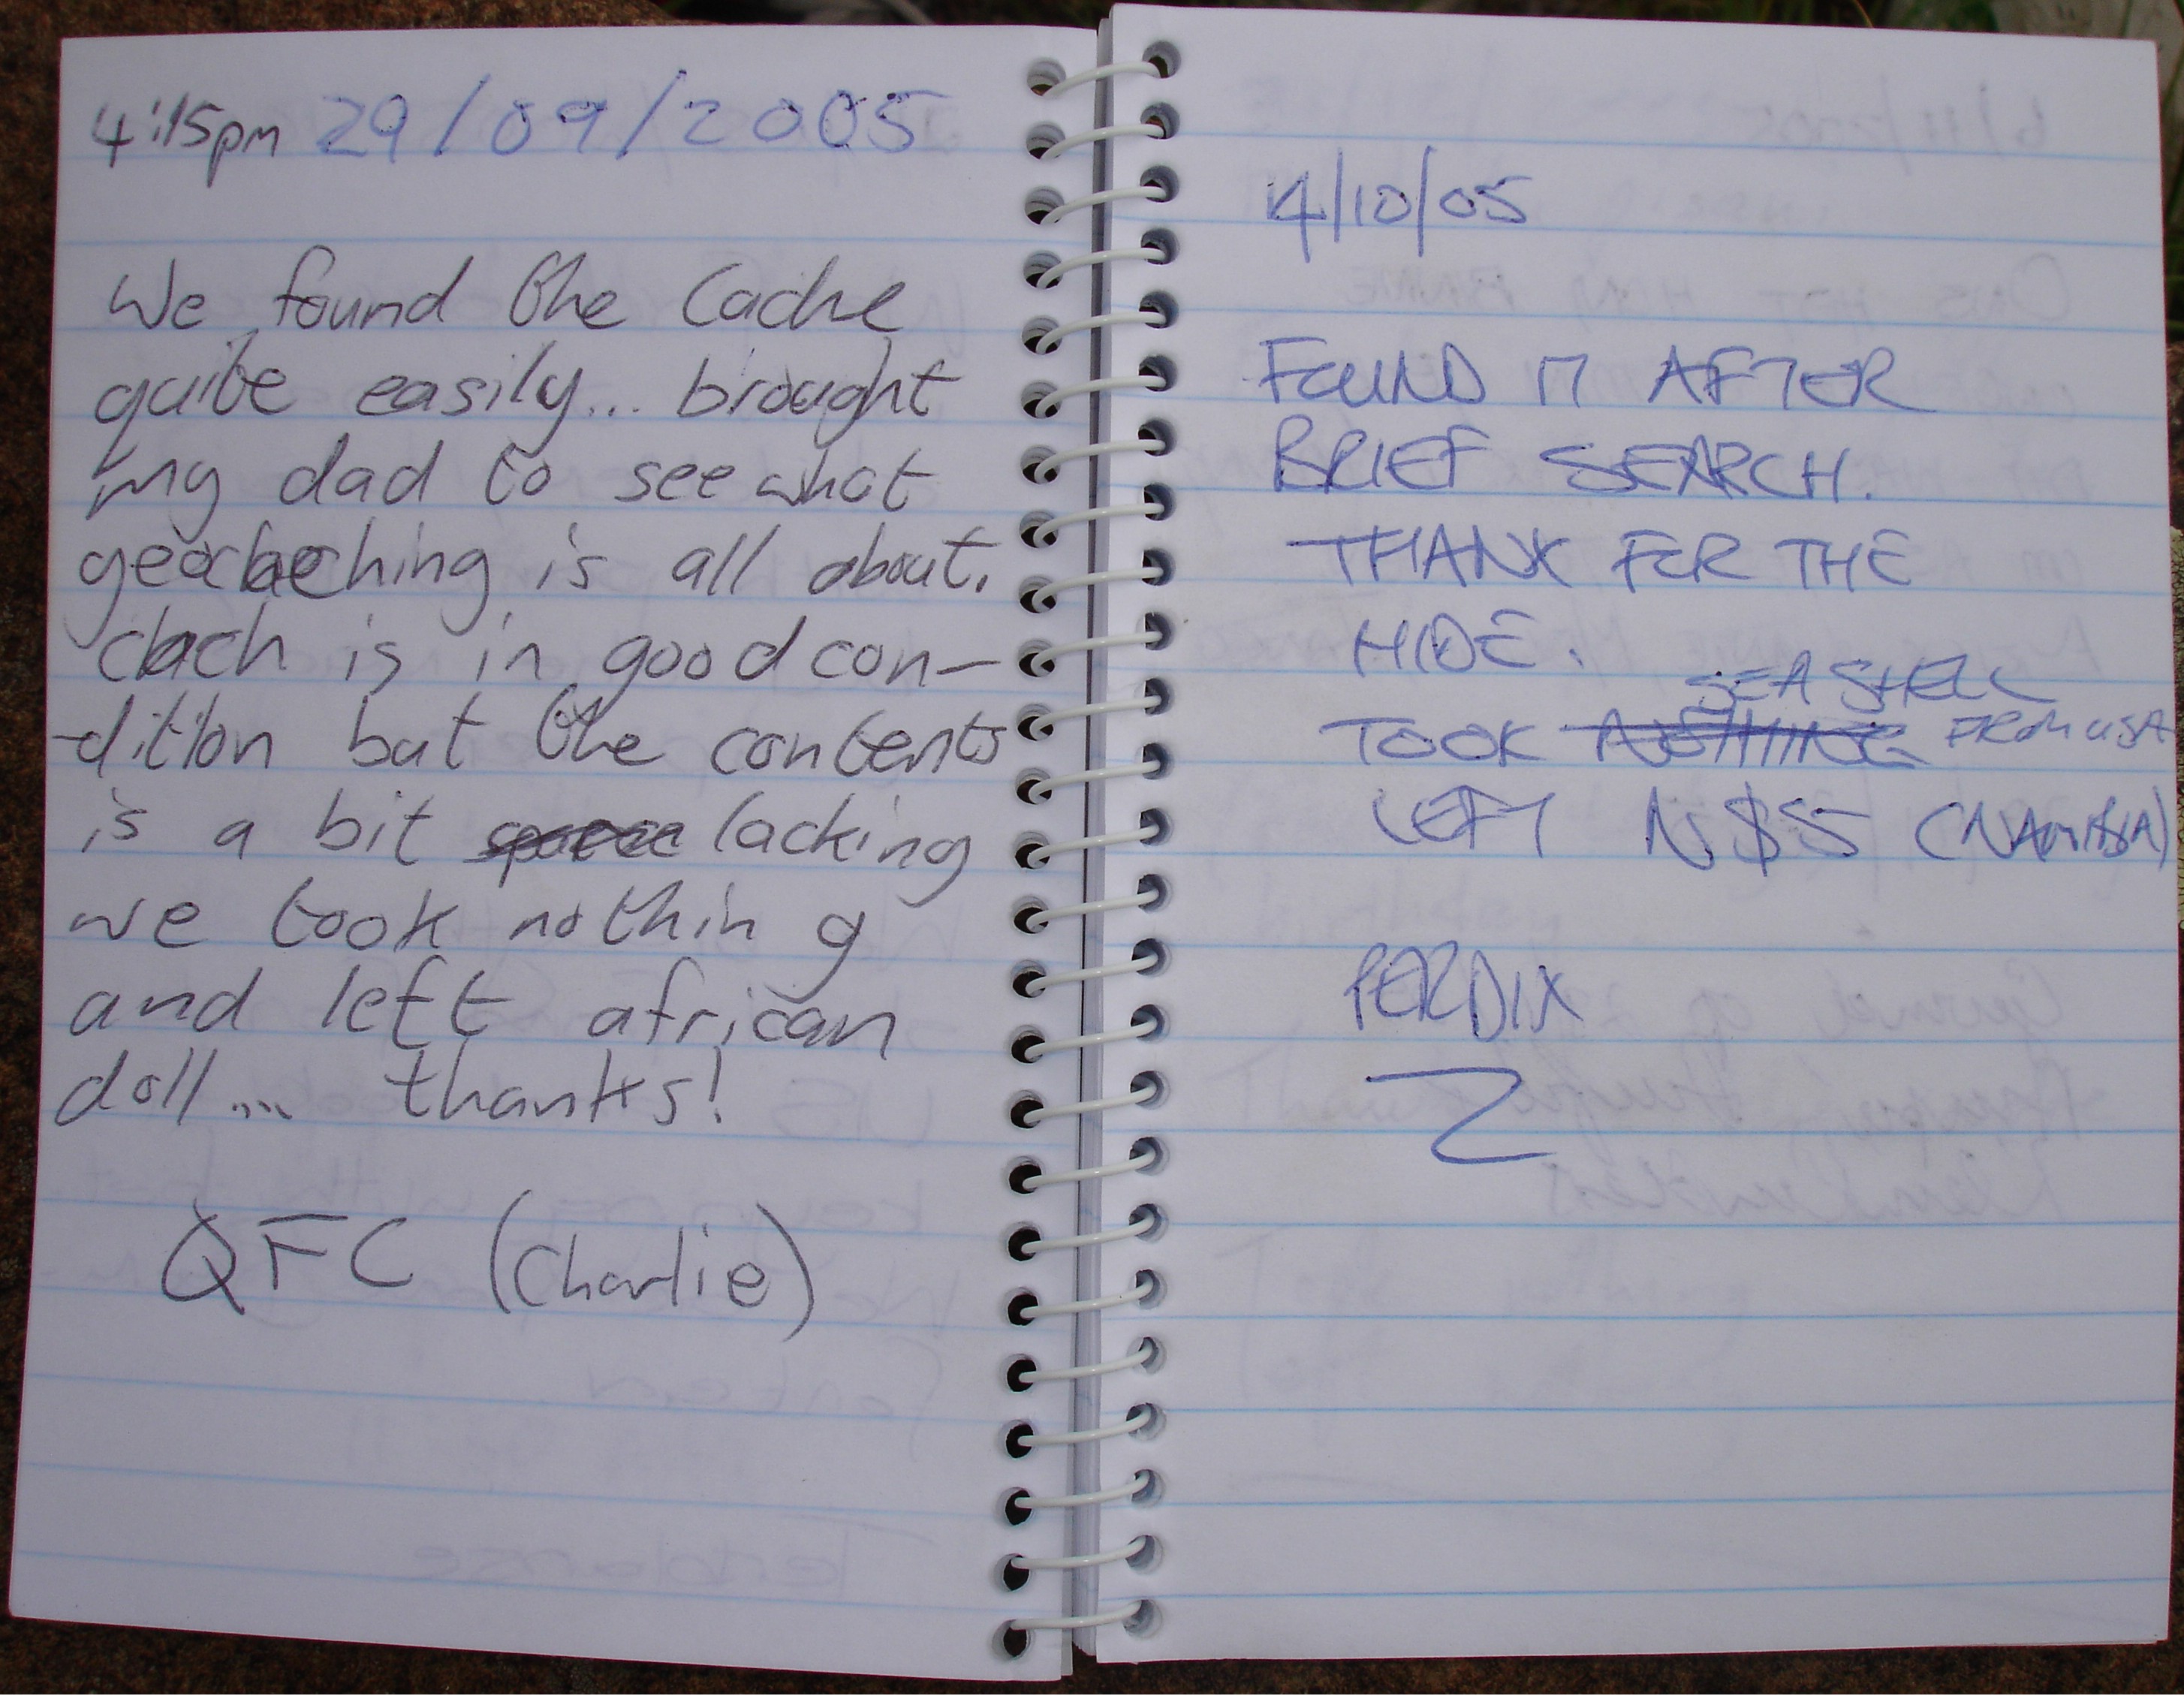 4:15pm 29/09/2005
We found the Cache
quite easily... brought
my dad to see what
geocacheching is all about.
clach is in good con-
-dition but the contents
is a bit lacking
we took nothing
and left african
doll... thanks!
QFC (Charlie)
4/10/05
FOUND IT AFTER
BRIEF SEARCH.
THANK FOR THE
HIDE.
SEA SHELL
TOOK NOTHING FROM USA
LEFT N$5 (NAMIBIA)
PERDIX